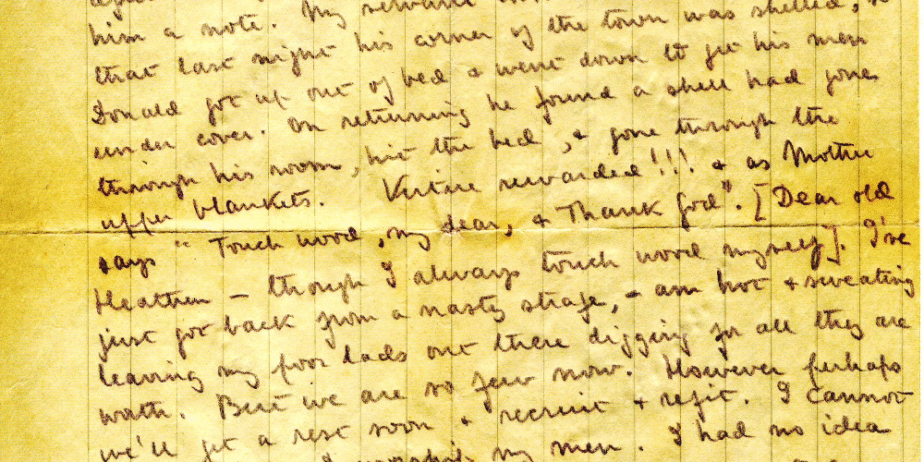 him a note. My servant
that last night his corner of the town was shelled, so
Donald got up out of bed & went down to get his men
under cover. On returning he found a shell had gone
through his room, hit the bed, & gone through the
upper blankets. Virtue rewarded!!! & as Mother
says "Touch wood, my dear, & Thank God". [Dear old
Heathen – though I always touch wood myself]. I've
just got back from a nasty strafe, & am hot & sweating
leaving my poor lads out there digging for all they are
worth. But we are so few now. However perhaps
we'll get a rest soon & recruit & refit. I cannot
my men. I had no idea